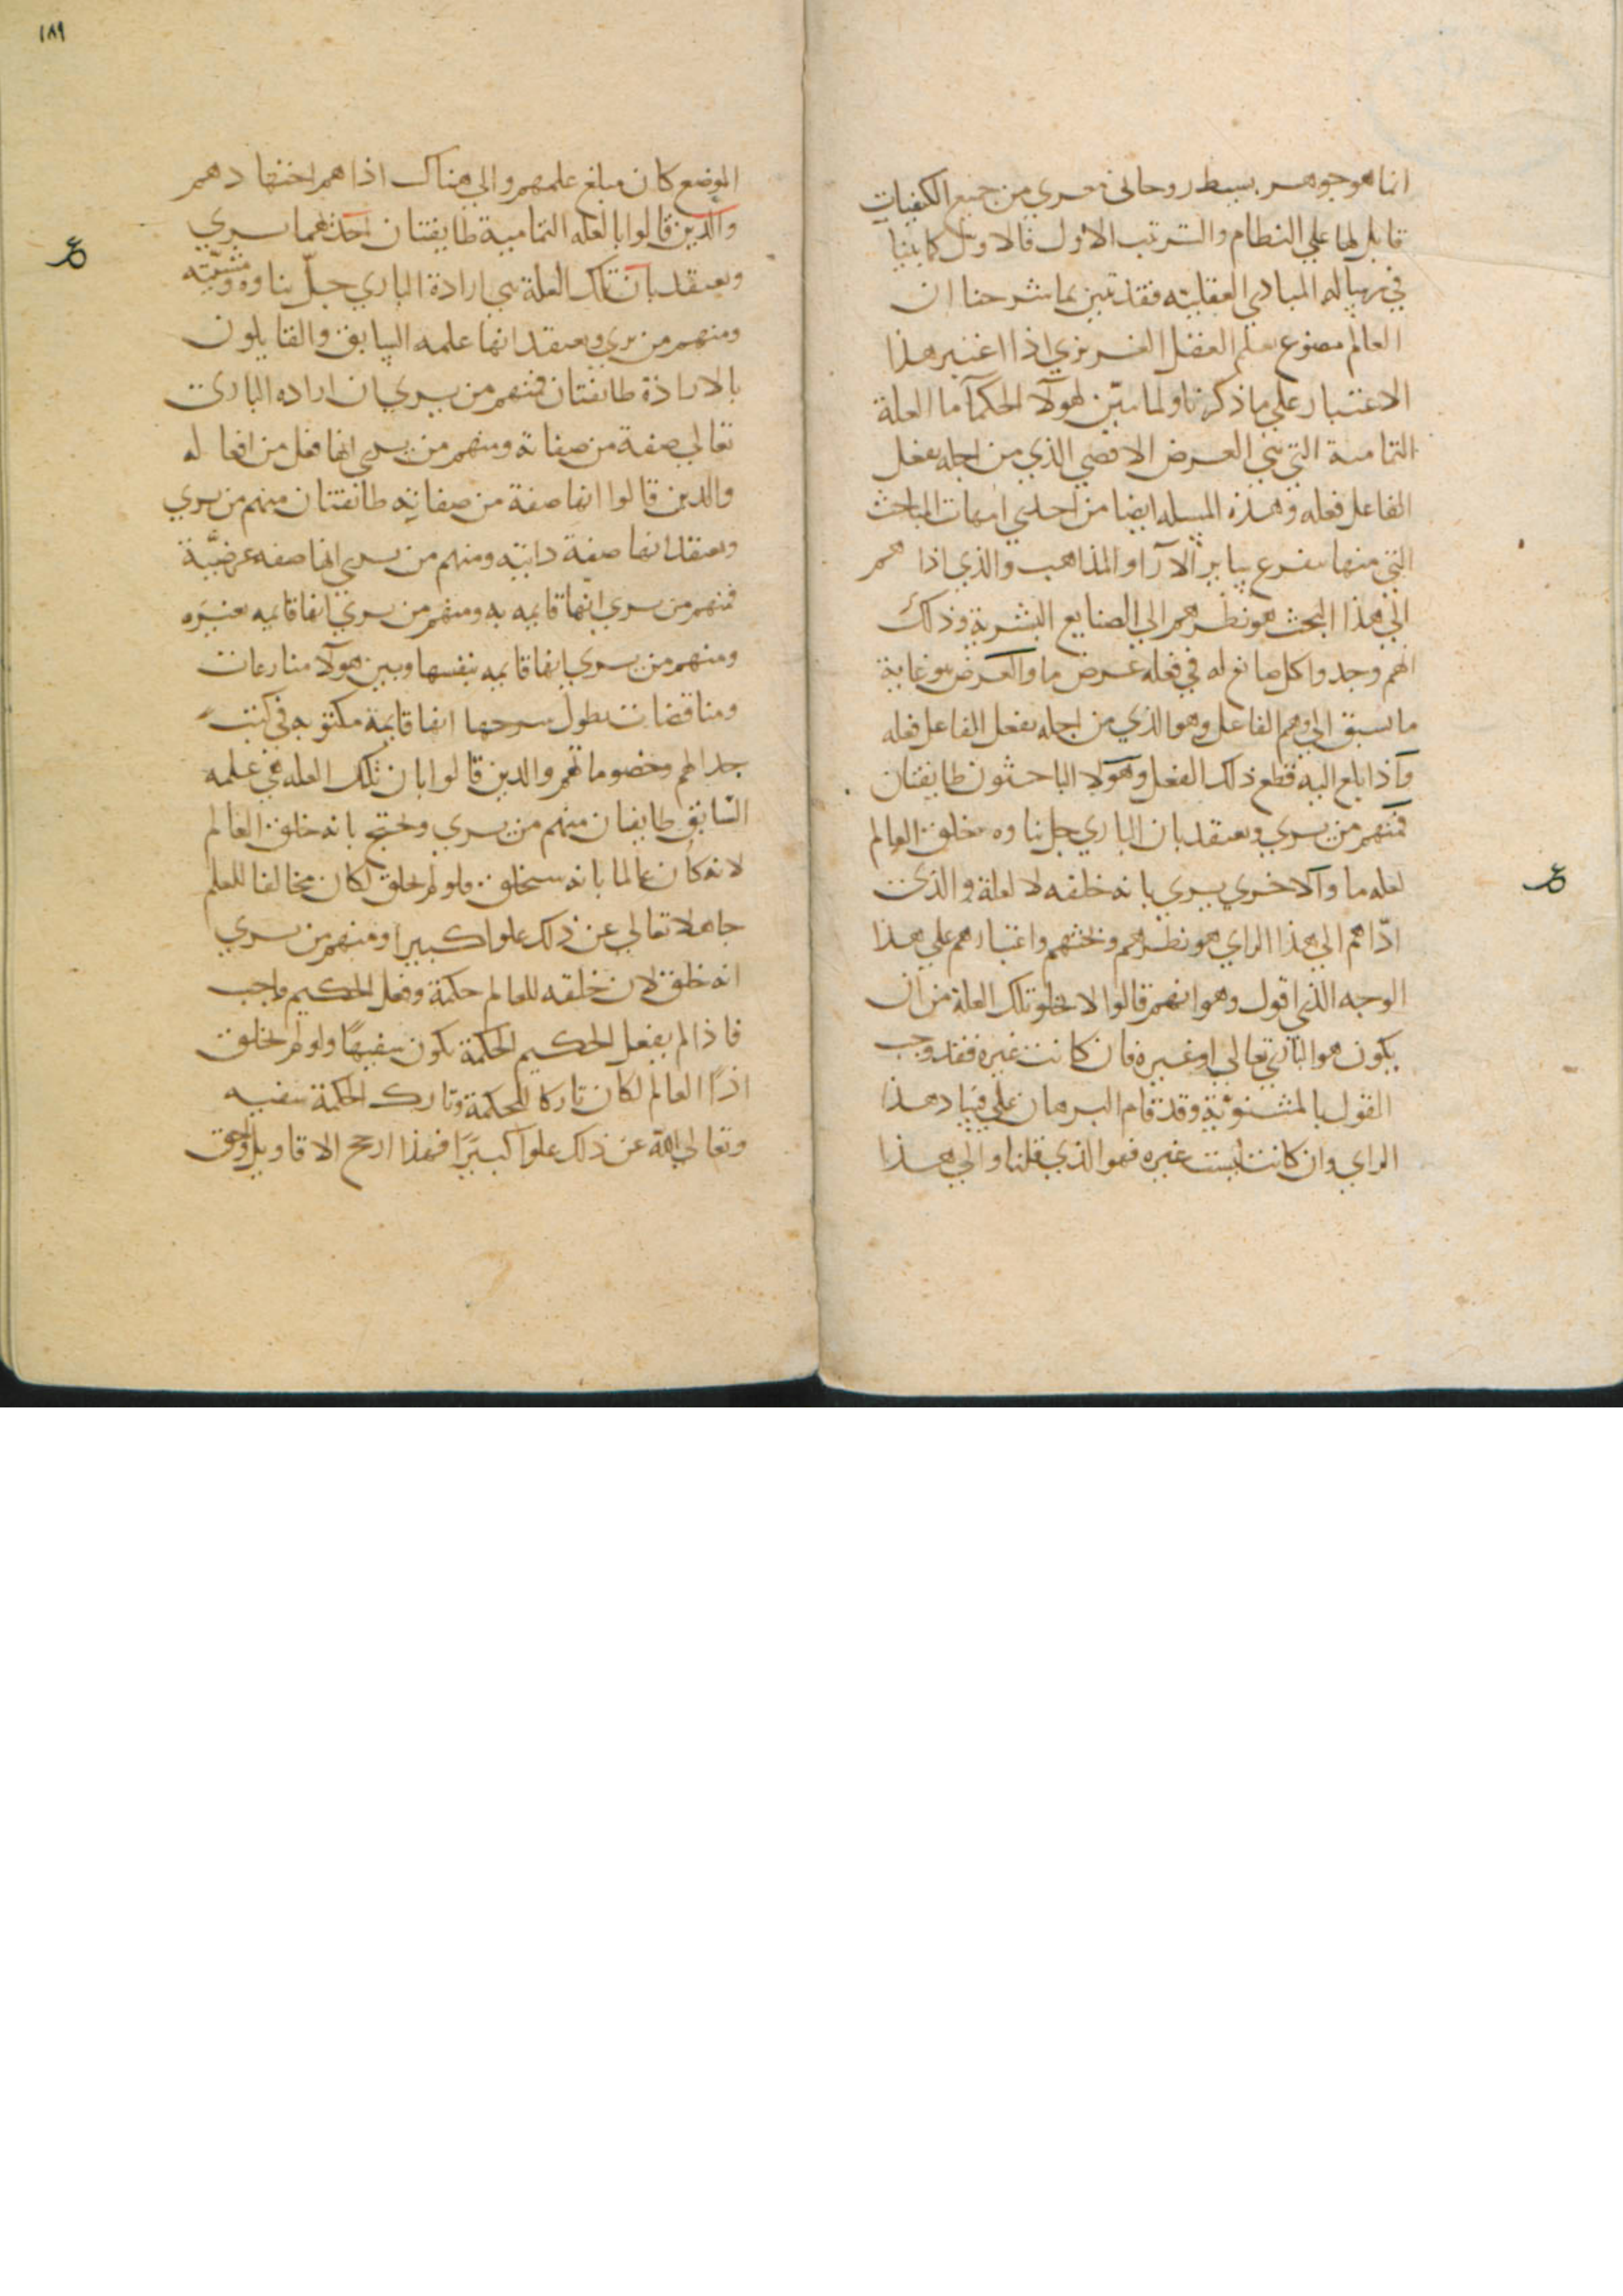 انما هو جوهر بسيط روحاني معري من جميع الكيفيات
قابل لها علي النظام والترتب الاول فالاول كما بينا
في رسالة المبادي العقلية فقد تبين بما شرحنا ان
العالم مصنوع يعلم العقل الغريزي اذا اعتبر هذا
الاعتبار علي ما ذكرنا ولما تبين لهولآ الحكمآ ما العلة
التمامية التي هي الغرض الاقصي الذي من اجله يفعل
الفاعل فعله وهذه المسله ايضا من احدي امهات المباحث
التي منها يتفرع ساير الآرا والمذاهب والذي اداهم
الي هذا البحث هو نظرهم الي الصنايع البشرية وذلك
انهم وجدوا كل صانع له في فعله غرض ما والغرض هو غاية
ما تسبق الي وهم الفاعل وهو الذي من اجله يفعل الفاعل فعله
واذا بلغ اليه قطع ذلك الفعل وهولا الباحثون طايفتان
فمنهم من يري ويعتقد بان الباري جل ثناوه خلق العالم
لعله ما والاخري يري بانه خلقه لا لعلة والذي
اداهم الي هذا الراي هو نظرهم وبحثهم واعتبارهم علي هذا
الوجه الذي اقول وهو انهم قالوا لا يخلو تلك العلة من ان
يكون هو الباري تعالي او غيره فان كانت غيره فقد وجب
القول بالمثنوية وقد قام البرهان علي فساد هذا
الراي وان كانت ليست غيره فهو الذي قلنا والي هذا
١٨٩
الموضع كان مبلغ علمهم والي هناك اداهم اجتهادهم
والذين قالوا بالعله التمامية طايفتان احدهما يري
ويعتقد بان تلك العلة هي ارادة الباري جل ثناوه ومشيته
ومنهم من يري ويعتقد انها علمه السابق والقايلون
بالارادة طايفتان فمنهم من يري ان اراده الباري
تعالي صفة من صفاته ومنهم من يري انها فعل من افعاله
والذين قالوا انها صفة من صفاته طايفتان منهم من يري
ويعتقد انها صفة ذاتيه ومنهم من يري انها صفه عرضية
فمنهم من يري انها قايمه به ومنهم من يري انها قايمه بغيره
ومنهم من يري انها قايمه بنفسها وبين هولآ منازعات
ومناقضات يطول شرحها انها قايمة مكتوبه في كتب
جدالهم وخصوماتهم والذين قالوا بان تلك العله هي علمه
السابق طايفتان منهم من يري ويحتج بانه خلق العالم
لانه كان عالما بانه سيخلق ولو لم يخلق لكان مخالفا للعلم
جاهلا تعالي عن ذلك علوا كبيرا ومنهم من يري
انه خلق لان خلقه للعالم حكمة وفعل الحكيم واجب
فاذا لم يفعل الحكيم الحكمة يكون سفيها ولو لم يخلق
اذا العالم لكان تاركا للحكمة وتارك الحكمة سفيه
وتعالي الله عن ذلك علوا كبيرا فهذا ارجح الاقاويل واحق